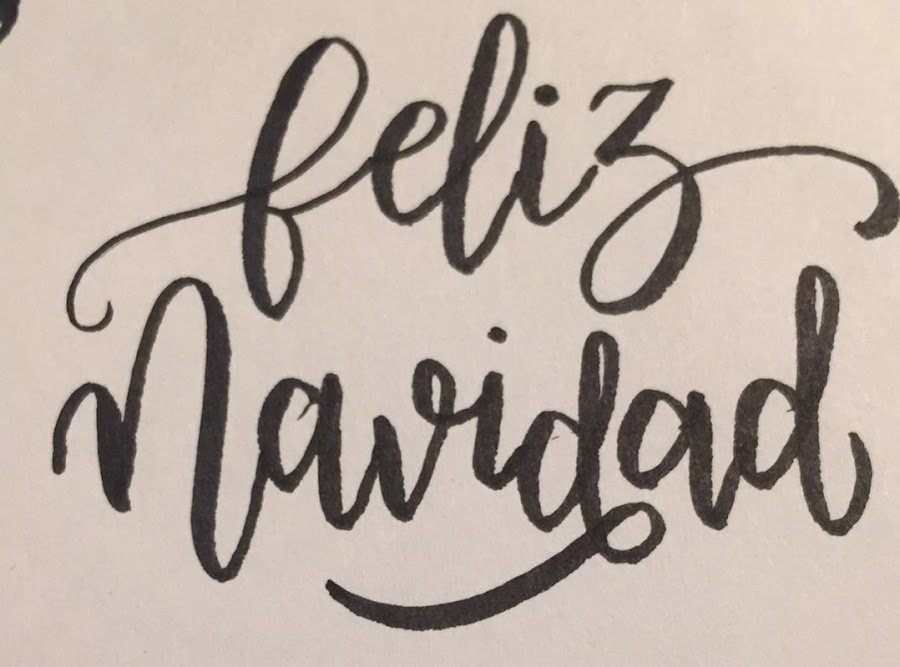 feliz
Navidad